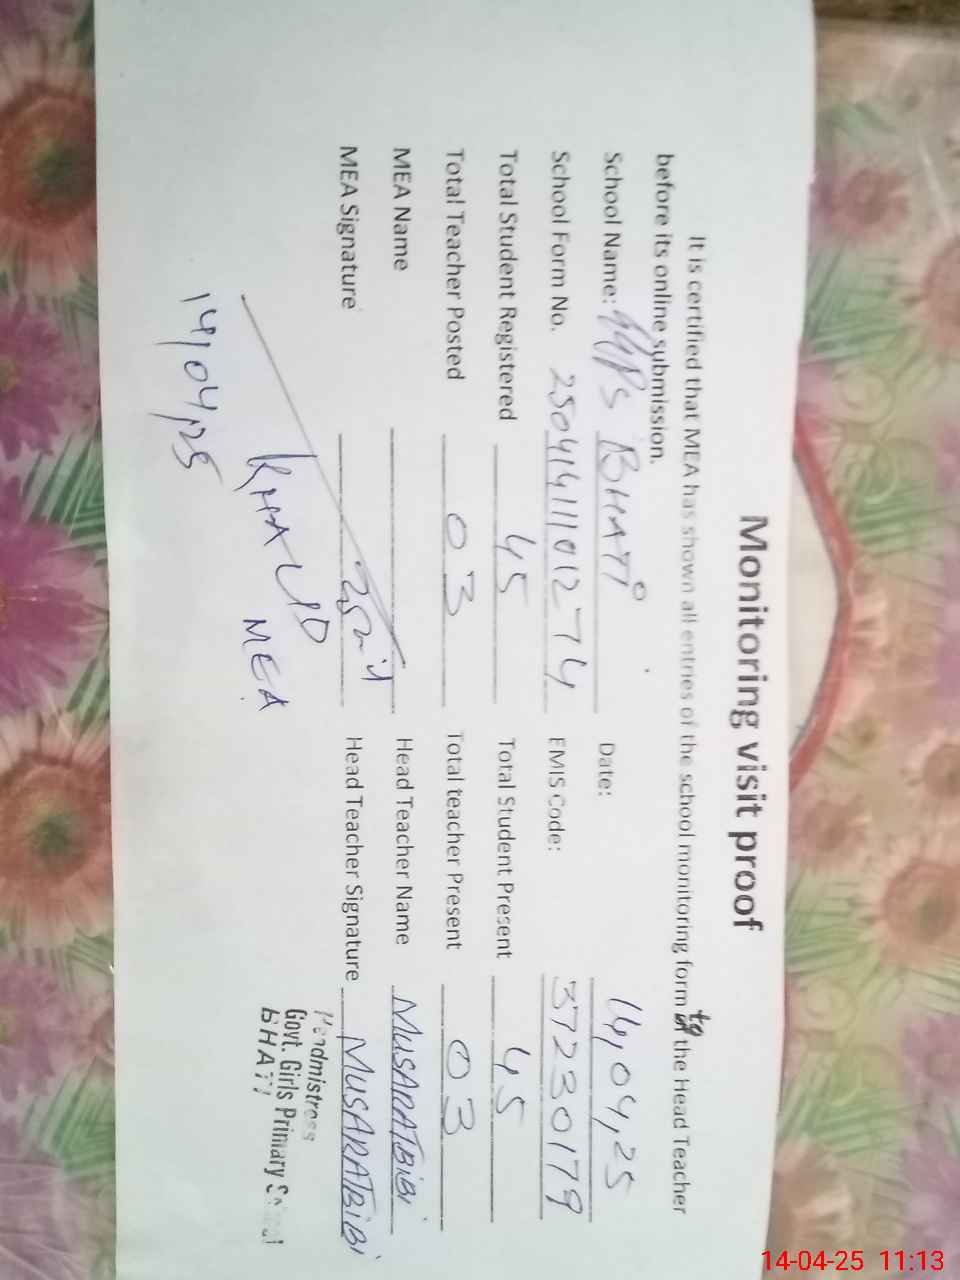 Monitoring visit proof
It is certified that MEA has shown all entries of the school monitoring form to the Head Teacher
before its online submission.
School Name: GGPS BHATI Date: 14,04,25
School Form No. 2504141101274 EMIS Code: 37230179
Total Student Registered 45 Total Student Present 45
Total Teacher Posted 03 Total teacher Present 03
MEA Name Head Teacher Name MUSARATBiBi
MEA Signature Head Teacher Signature MUSARATBiBi
KHALID MEA
14,04,25
Headmistress
Govt. Girls Primary School
BHATI
14-04-25 11:13